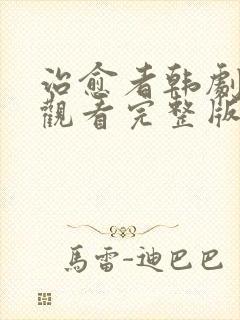 治愈者韩劇
觀看完整版
馬雷-迪巴巴